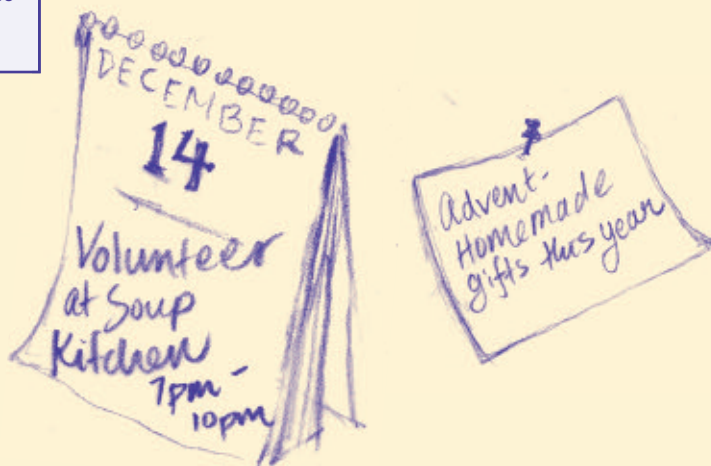 DECEMBER
14
Volunteer
at Soup
Kitchen
7pm -
10pm
Advent-
Homemade
gifts this year